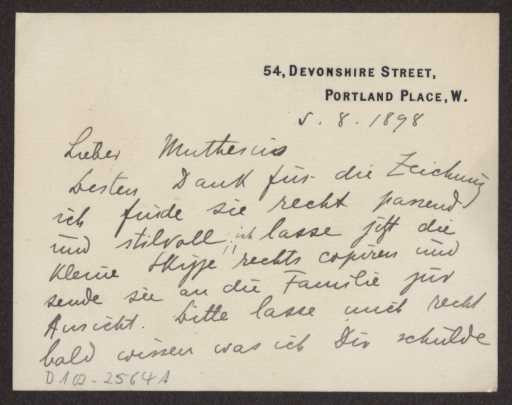 54, DEVONSHIRE STREET,
PORTLAND PLACE, W.
5. 8. 1898
Lieber Muthesius
besten Dank für die Zeichnung
ich finde sie recht passend
und stilvoll, ich lasse jetzt die
kleine Skizze "rechts copiren und
sende sie an die Familie zur
Ansicht. Bitte lasse mich recht
bald wissen was ich Dir schulde
D 102-2564A